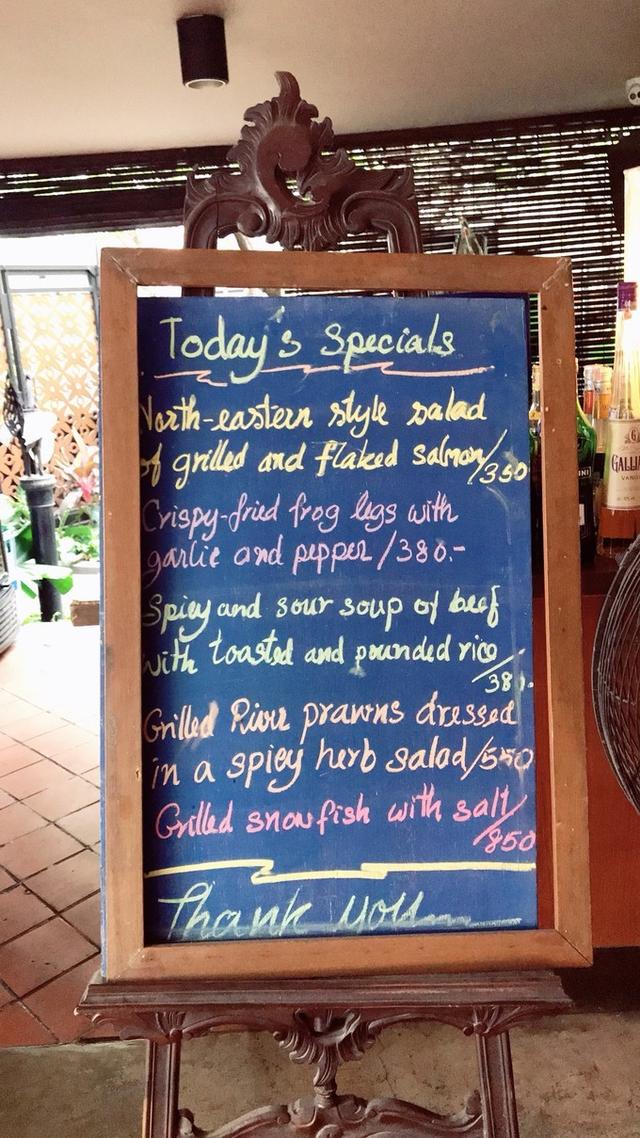 Today's Specials
North-eastern style salad
of grilled and flaked salmon/350
Crispy-fried frog legs with
garlic and pepper/380.-
Spicy and sour soup of beef
with toasted and pounded rice
Grilled River prawns dressed
in a spicy herb salad/550
Grilled snowfish with salt/
850
Thank you
GALLI